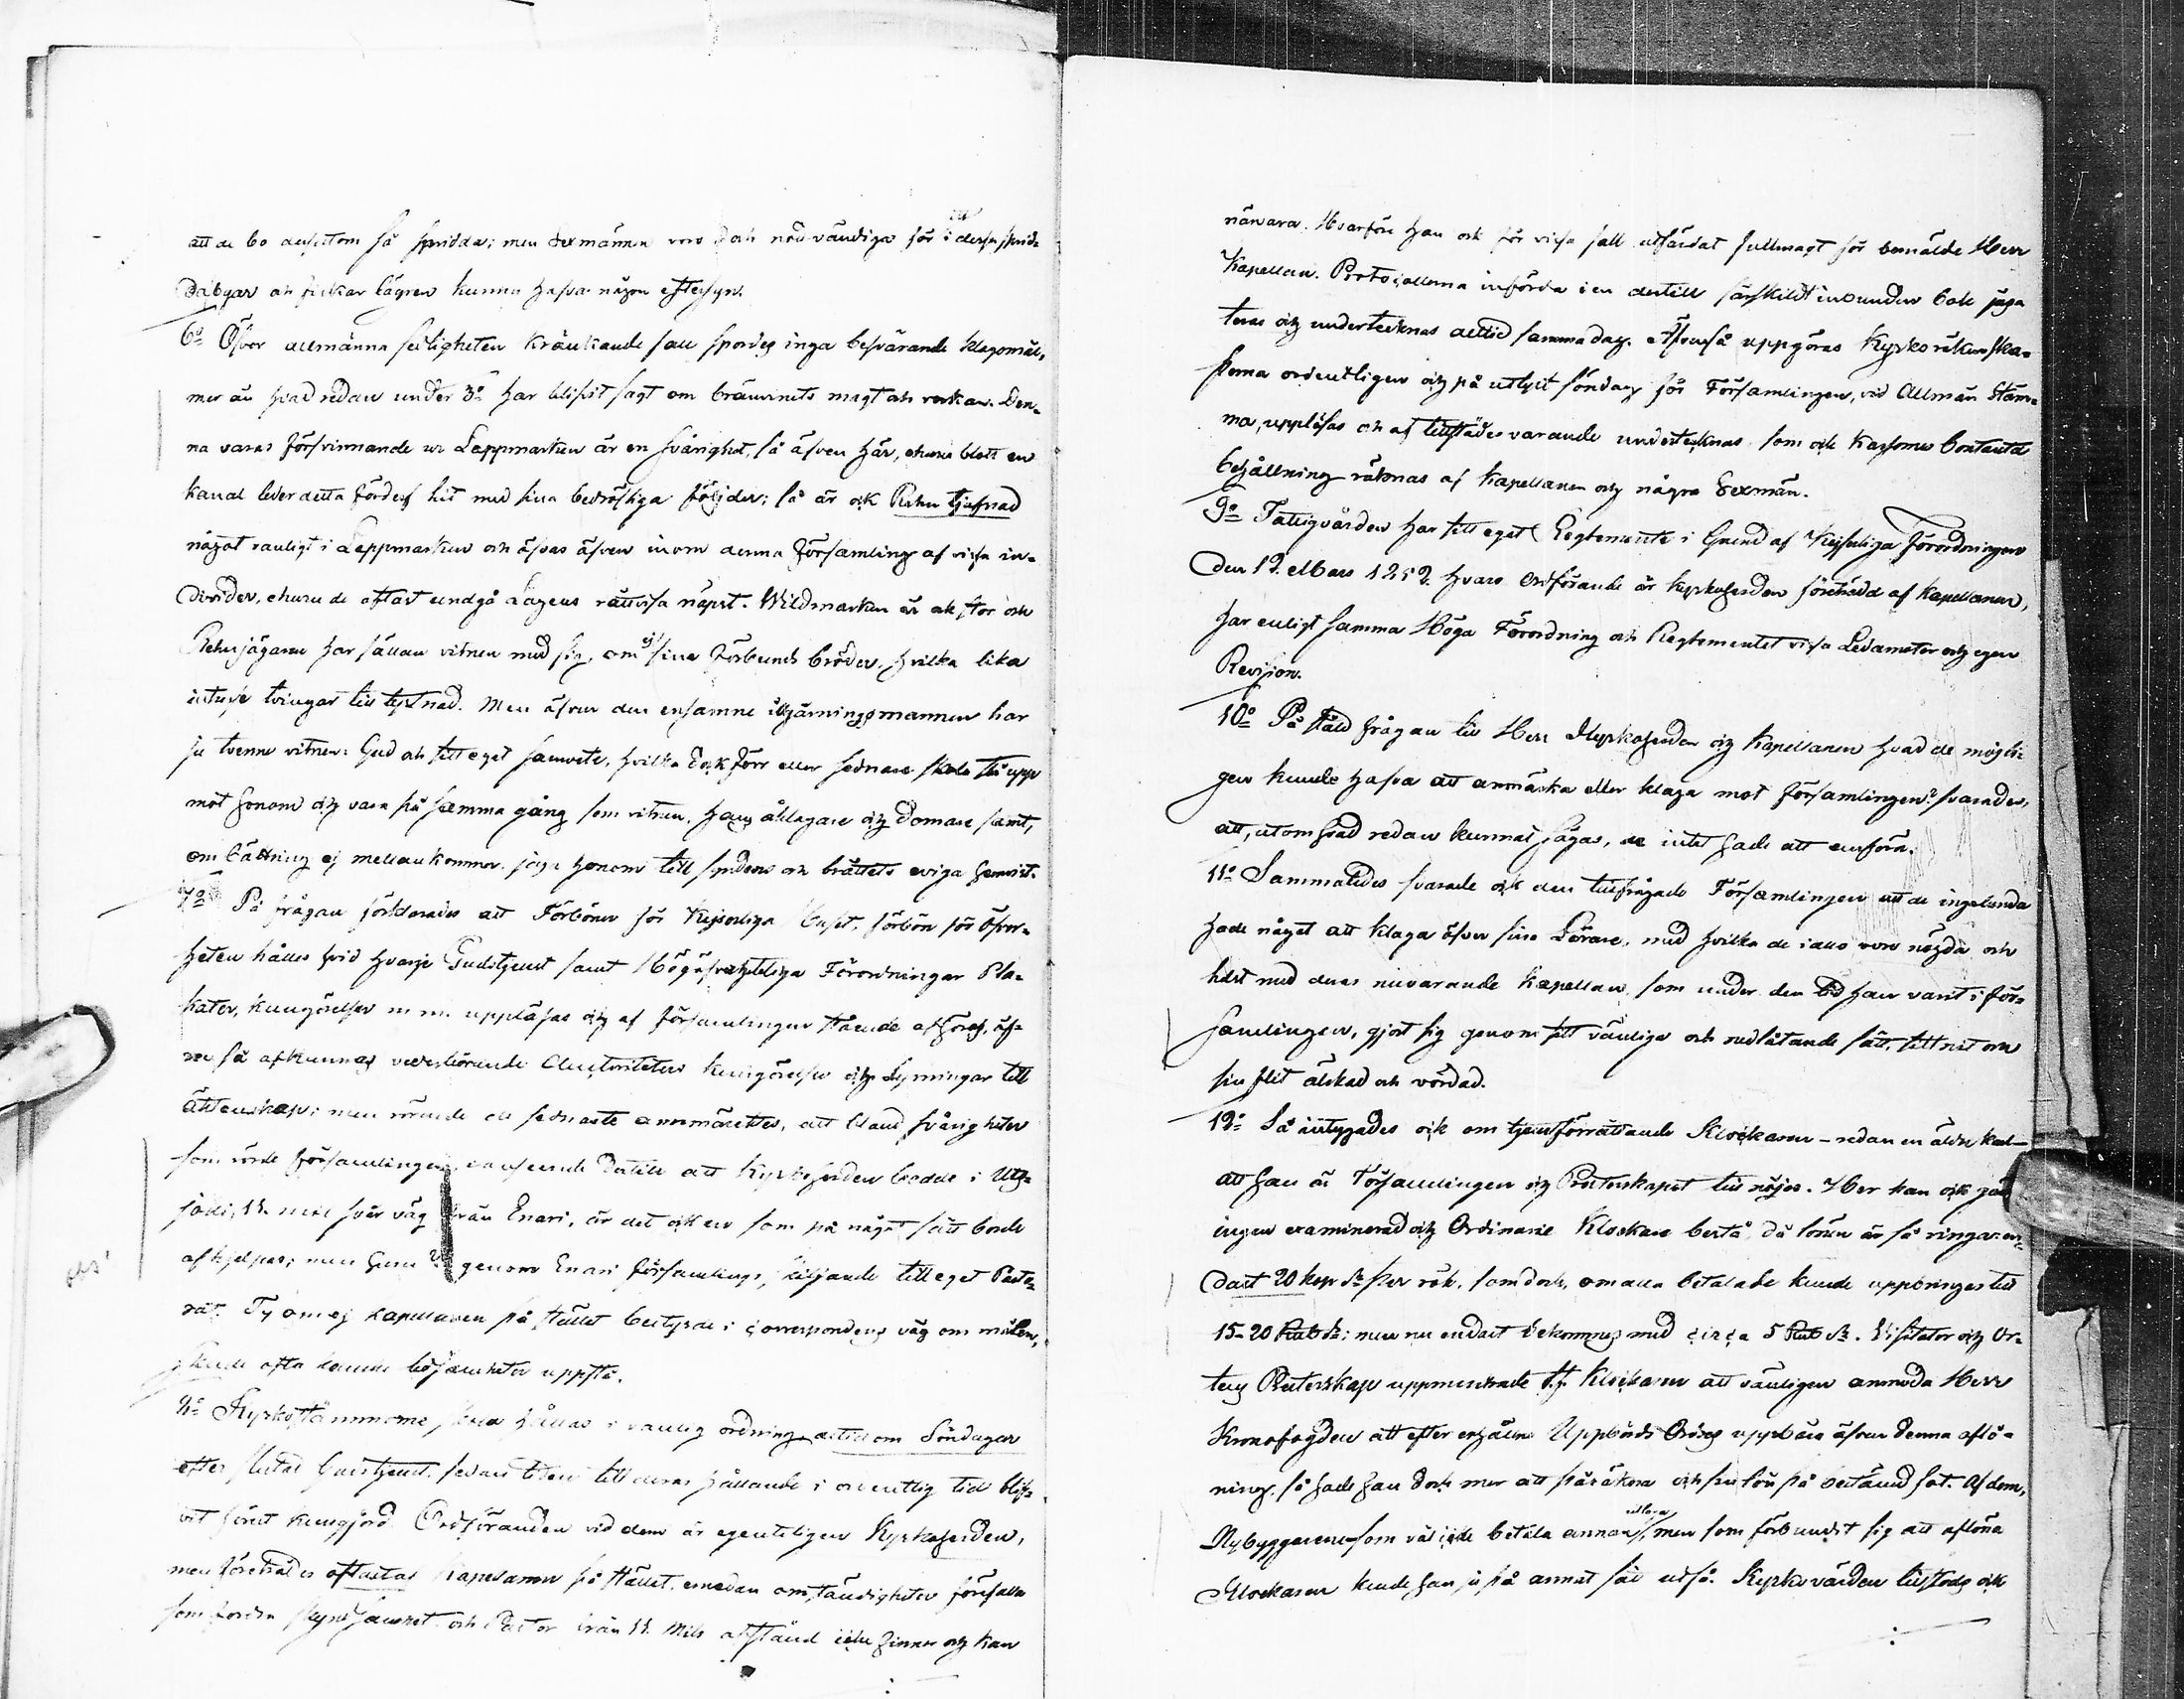 att de bo dessutom så spridda; men sexmännen voro dock nödvändiga för i dessa sprid-
da byar och fiskar lägren kunna hafva någon eftersyn.
6:o Öfver allmänna sedligheten kränkande fall spordes inga besvärande klagomål,
mer än hvad redan under 3:o har blifvit sagt om bränvinets magt och verkan. Den-
na varas försvinnande ur Lappmarken är en svårighet, så äfven här, ehuru blott en
kanal leder detta förderf hit med sina bedröfliga följder; så är ock Rehn tjufnad
något vanligt i Lappmarken och äfvas äfven inom denna församling af vissa in-
divider, ehuru de oftast undgå Lagens rättvisa näpst. Wildmarken är ock stor och
Rehntjägaren har sällan vitnen med sig, om ej sina förbunds bröder, hvilka lika
intresse tvingar till tystnad. Men äfven den ensamne illgärningsmannen har
ju tvenne vitnen: Gud och sitt eget samvete, hvilka dock förr eller sednare skola stå upp
mot honom och vara på samma gång som vitnen, hans åklagare och domare samt,
om bättring ej mellankommer, jaga honom till syndens och brottets eviga hemvist.
7:o På frågan förklarades att Förböner för Kejserliga huset, förbön för öfver-
heten hålles vid hvarje Gudstjenst samt Högöfverhetliga Förordningar Pla-
kater, kungörelser m m uppläsas och af församlingen stående afhöras, äf-
ven så afkunnas vederbörande Auctoriteters kungörelser och Lysningar till
äktenskap; men rörande de sednaste anmärktes, att bland svårigheter
som rörde församlingen, i anseende dertill att Kyrkoherden bodde i Uts-
joki, 11 mil svår väg från Enari, är det ock en som på något sätt borde
afhjelpas; men huru? genom Enari församlings skiljande till eget Pasto-
rat. Ty om ej kapellanen på stället bestyrde i correspondens väg om målen,
skulle ofta ledsamheter uppstå.
8:o Kyrkostämmorne hållas i vanlig ordning alltid om Söndagen
efter slutad Gudstjenst, sedan tiden till deras hållande i ordentlig tid blif-
vit förut kungjord. Ordföranden vid dem är egenteligen Kyrkoherden,
men företrädes oftast af kapellanen på stället, emedan omständigheter förefalla
som fordra skyndsamhet och Pastor från 11 Mils afstånd icke hinner och kan
närvara. Hvarföre han ock för vissa fall utfärdat fullmagt för bemälde Herr
Kapellan. Protocollerna införda i en dertill särskildt inbunden bok juste-
teras och undertecknas alltid samma dag. Äfvenså uppgöras Kyrkoräkenska-
perna ordentligen och på utlyst söndag för Församlingen, vid Allmän Stäm-
ma, uppläsas och af tillstädesvarande undertecknas som ock kassans Contanta
behållning räknas af Kapellanen och några Sexmän.
9:o Fattigvården har sitt eget Reglemente i Grund af Kejserliga Förordningen
den 12 Mars 1852 hvars Ordförande är kyrkoherden företrädd af Kapellanen,
har enligt samma Höga Förordning och Reglementet vissa Ledamöter och egen
Revision.
10:o På stäld frågan till Herr Kyrkoherden och Kapellanen hvad de möjli-
gen kunde hafva att anmärka eller klaga mot församlingen? svarades,
att, utom hvad redan kunnat sägas, de intet hade att anföra.
11:o Sammaledes svarade ock den tillfrågade Församlingen att de ingalunda
hade något att klaga öfver sina Lärare, med hvilka de i allo voro nöjda och
helst med deras nuvarande Kapellan, som under den tid han varit i för-
samlingen, gjort sig genom sitt vänliga och nedlåtande sätt, sitt nit och
sin flit älskad och vördad.
12:o Så intygades ock om tjenstförrättande Klockaren – redan en äldre karl –
att han är Församlingen och Presterskapet till nöjes. Här kan ock
ingen examinerad och Ordinarie Klockare bestå, då lönen är så ringa: en-
dast 20 kop S:r per rök, som dock, om alla betalade kunde uppbringas till
15–20 Rub S:r; men nu endast bekommes med circa 5 Rub S:r. Visitator och Or-
tens Presterskap uppmuntrade t.f. Klockaren att vänligen anmoda Herr
Kronofogden att efter erhållne Uppbörds Ordres uppbära äfven denna aflö-
ning, så hade han dock mer att påräkna och sin lön på bestämd fot. Af dem,
Nybyggarene som väl icke betala annan utlaga, men som förbundit sig att aflöna
Klockaren kunde han ju på annat sätt utfå. Kyrkovärden tillstods ock